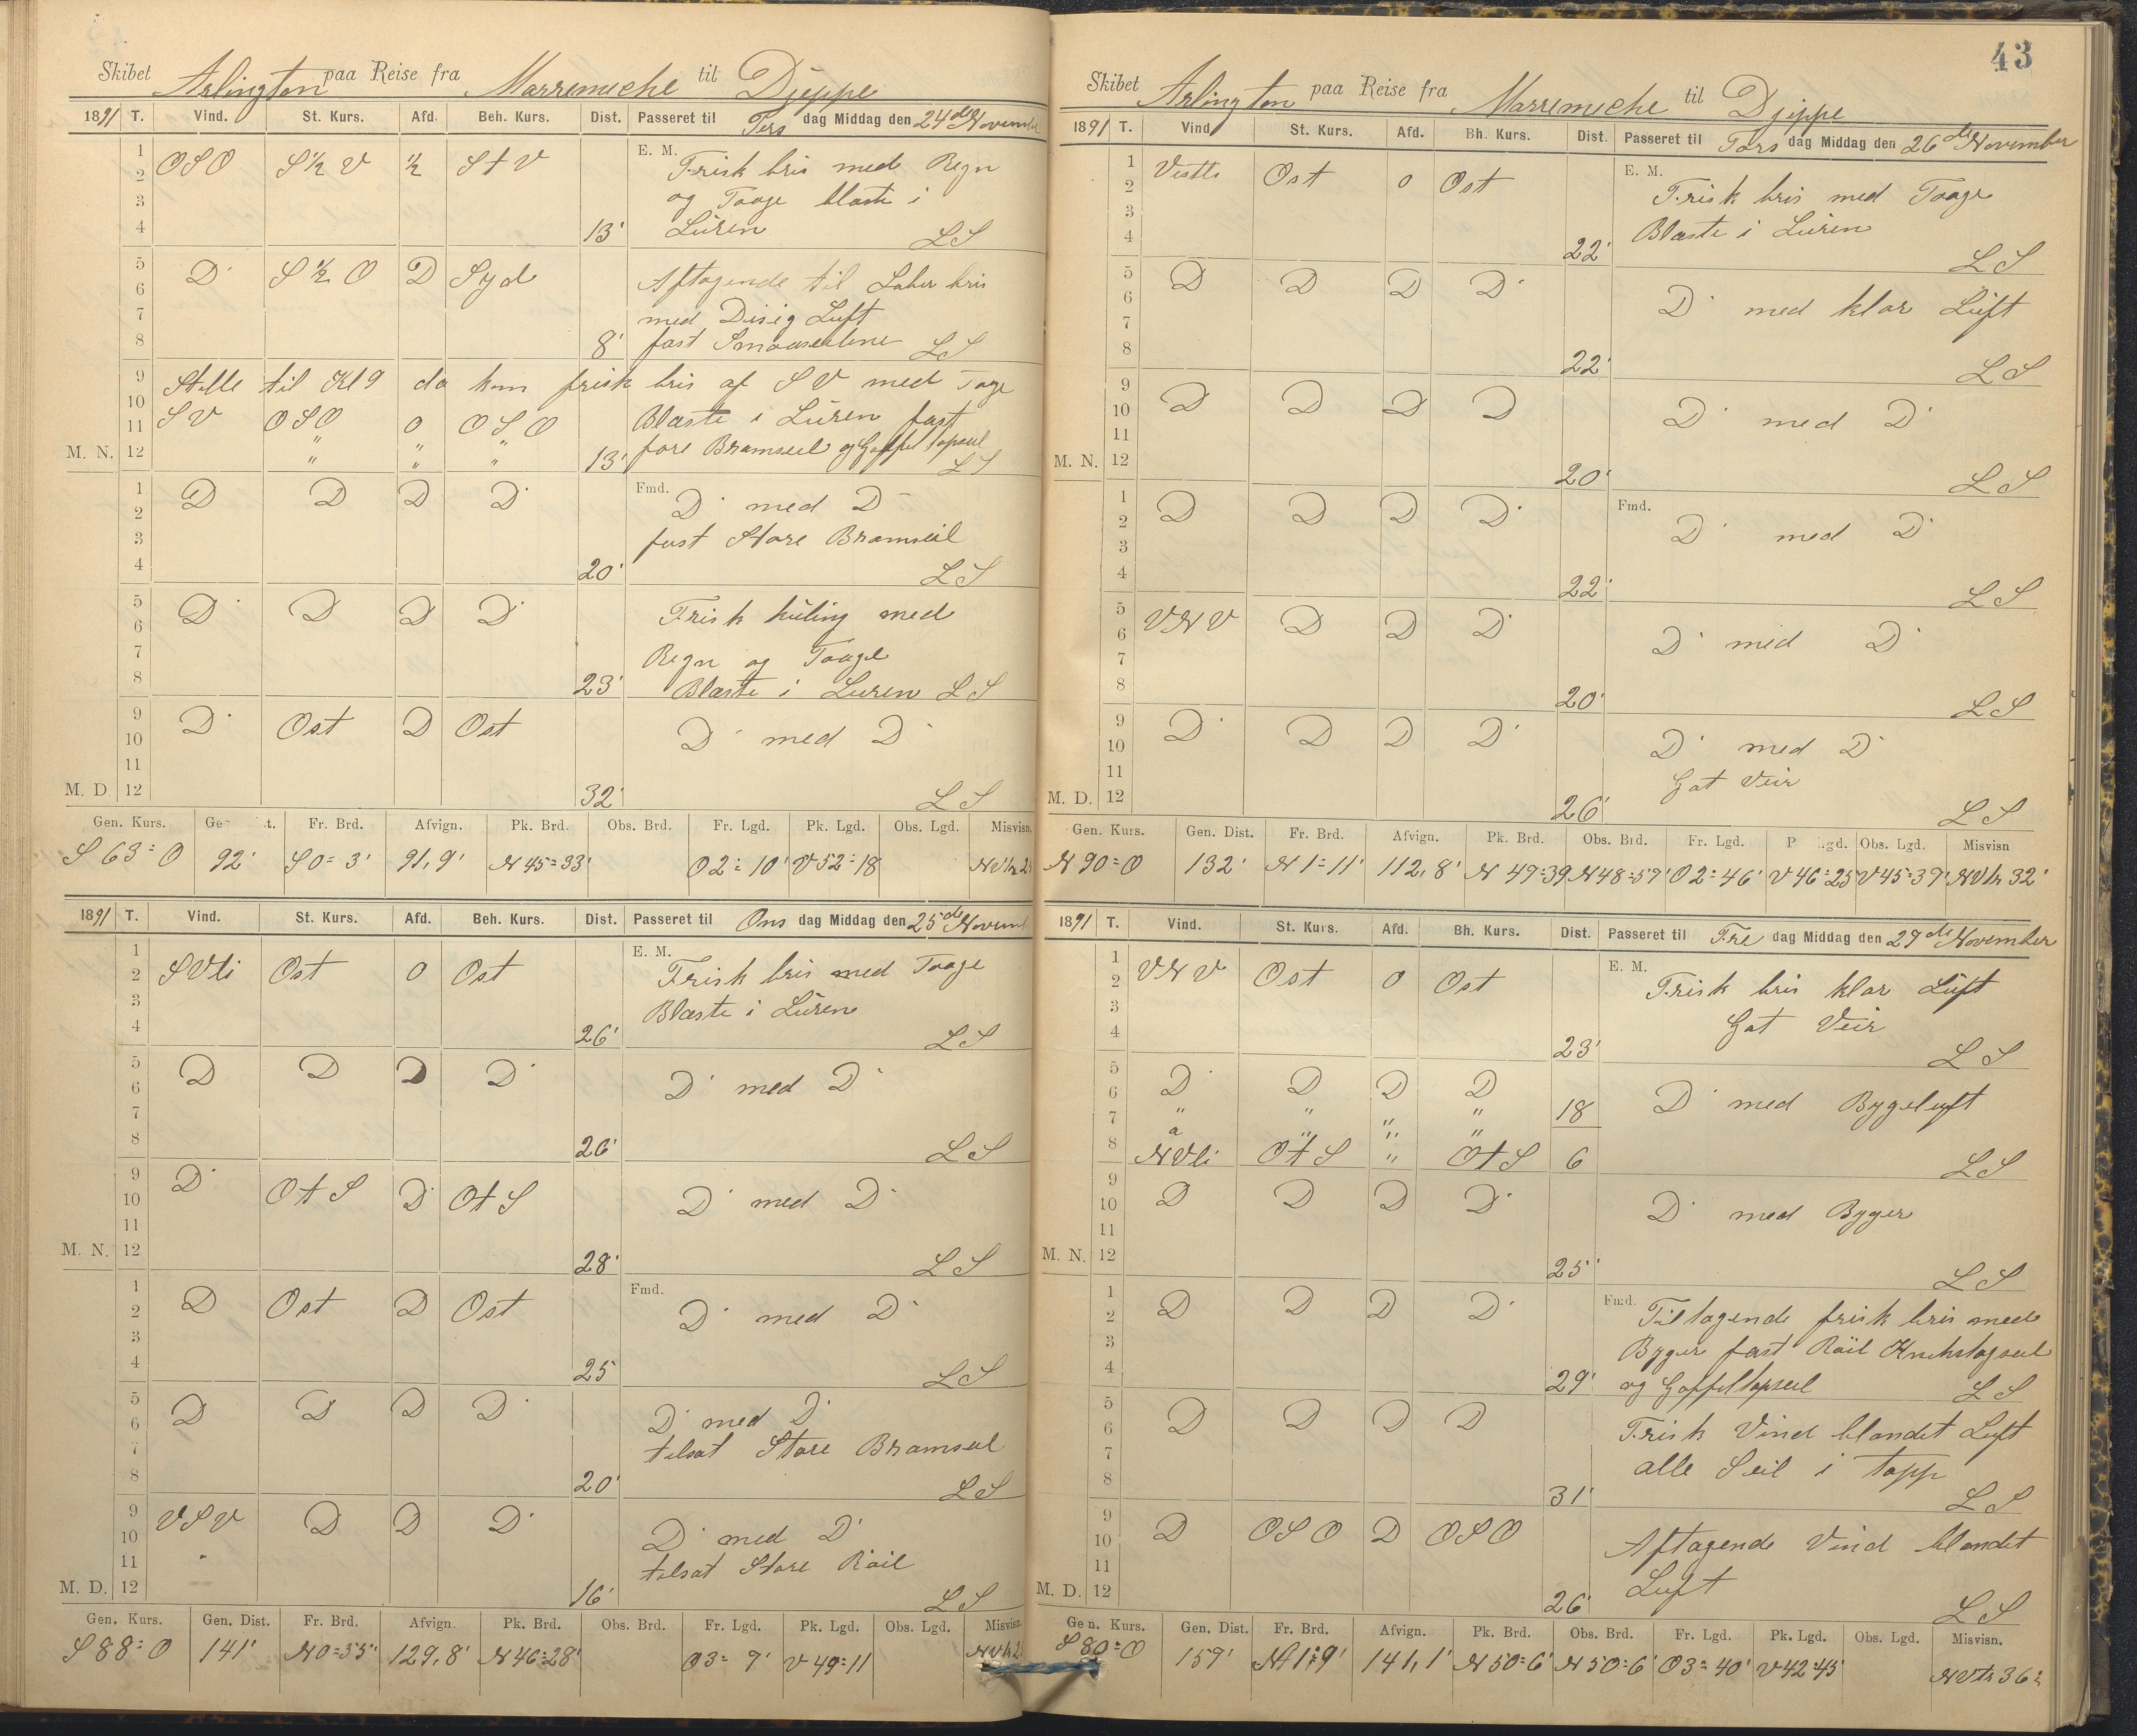 Skibet Arlington paa Reise fra Marremeche til Djeppe
1891 T. Vind. St. Kurs. Afd. Beh. Kurs. Dist. Passeret til Ters dag Middag den 24de Novembe
1 E. M.
2 OSO S½V ½ StV Frisk bris med Regn
3 og Taage blaste i
4 13' Lüren LS
5
6 D S½O D Syd Aftagende til Laber bris
7 med Disig Lüft
8 8' fast Smaaseilene LS
9 Stille til Kl 9 da kom frisk bris af SV med Tage
10 SV OSO 0 OSO Blæste i Lüren fast
11 " " "
M. N. 12 " " " 13' fore Bramseil og Gaffeltopseil LS
1 Fmd.
2 D D D D D med D
3 fast Store Bramseil
4 20' LS
5
6 D D D D Frisk küling med
7 Regn og Taage
8 23' Blæste i Luren LS
9
10 D Ost D Ost D med D
11
M. D. 12 32' LS
Gen. Kurs. Ge t. Fr. Brd. Afvign. Pk. Brd. Obs. Brd. Fr. Lgd. Pk. Lgd. Obs. Lgd. Misvisn.
S63=O 92' S0=3' 91,9' N45=33' O2=10' V52=18
1891 T. Vind. St. Kurs. Afd. Beh. Kurs. Dist. Passeret til Ons dag Middag den 25de Novemb
1 E. M.
2 SVli Ost 0 Ost Frisk bris med Taage
3 Blæste i Lüren
4 26' LS
5
6 D D D D D med D
7
8 26' LS
9
10 D OtS D OtS D med D
11
M. N. 12 28' LS
1 Fmd.
2 D Ost D Ost D med D
3
4 25 LS
5
6 D D D D D med D
7 tilsat Store Bramseil
8 20' LS
9
10 VSV D D D D med D
11 tilsat Store Röil
M. D. 12 16' LS
Gen. Kurs. Gen. Dist. Fr. Brd. Afvign. Pk. Brd. Obs. Brd. Fr. Lgd. Pk. Lgd. Obs. Lgd. Misvisn.
S88=O 141' N0=35' 129,8' N46=28' O3=9' V49=11
43
Skibet Arlington paa Reise fra Marremeche til Djeppe
1891 T. Vind St. Kurs. Afd. Bh. Kurs. Dist. Passeret til Tors dag Middag den 26de November
1 E. M.
2 Vestli Ost 0 Ost Frisk bris med Taage
3 Blæste i Lüren
4 22' LS
5
6 D D D D D med klar Lüft
7
8 22' LS
9
10 D D D D D med D
11
M. N. 12 20' LS
1 Fmd.
2 D D D D D med D
3
4 22' LS
5
6 VNV D D D D med D
7
8 20' LS
9
10 D D D D D med D
11 Got Veir
M. D. 12 26' LS
Gen. Kurs. Gen. Dist. Fr. Brd. Afvign. Pk. Brd. Obs. Brd. Fr. Lgd. P gd. Obs. Lgd. Misvisn
N90=O 132' N1=11' 112,8' N49=39 N48=57' O2=46' V46=25 V45=39' NVtr 32'
1891 T. Vind. St. Kurs. Afd. Bh. Kurs. Dist. Passeret til Fre dag Middag den 27de November
1 E. M.
2 VNV Ost 0 Ost Frisk bris klar Lüft
3 Got Veir
4 23' LS
5
6 D D D D D med Bygeluft
7 " " " " 18
8 NVli OtS " OtS 6 LS
9
10 D D D D D med Byger
11
M. N. 12 25' LS
1 Fmd.
2 D D D D Tiltagende frisk bris med
3 Byger fast Röil
4 29' og Gaffeltopseil LS
5
6 D D D D Frisk Vind blandet Luft
7 alle Seil i topp
8 31' LS
9
10 D OSO D OSO Aftagende Vind blandet
11 Luft
M. D. 12 26' LS
Gen. Kurs. Gen. Dist. Fr. Brd. Afvign. Pk. Brd. Obs. Brd. Fr. Lgd. Pk. Lgd. Obs. Lgd. Misvisn.
S80=O 159' 141,1' N50=6' N50=6' O3=40' V42=45' NVtr 36